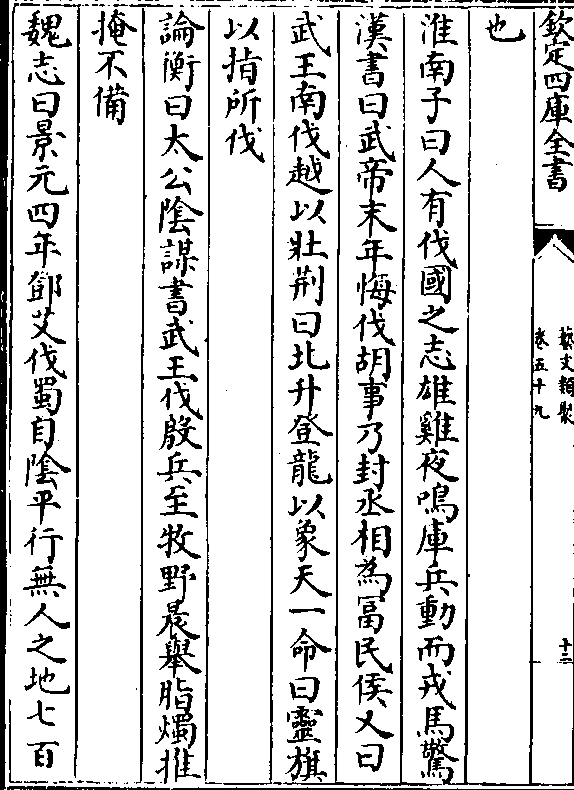 欽定四庫全書
藝文類聚
卷五十九
十三
也
淮南子曰人有伐國之志雄雞夜鳴庫兵動而戎馬驚
漢書曰武帝末年悔伐胡事乃封丞相為冨民侯又曰
武王南伐越以壯荆曰北升登龍以象天一命曰靈旗
以指所伐
論衡曰太公陰謀書武王伐殷兵至牧野晨舉脂燭推
掩不備
魏志曰景元四年鄧艾伐蜀自陰平行無人之地七百